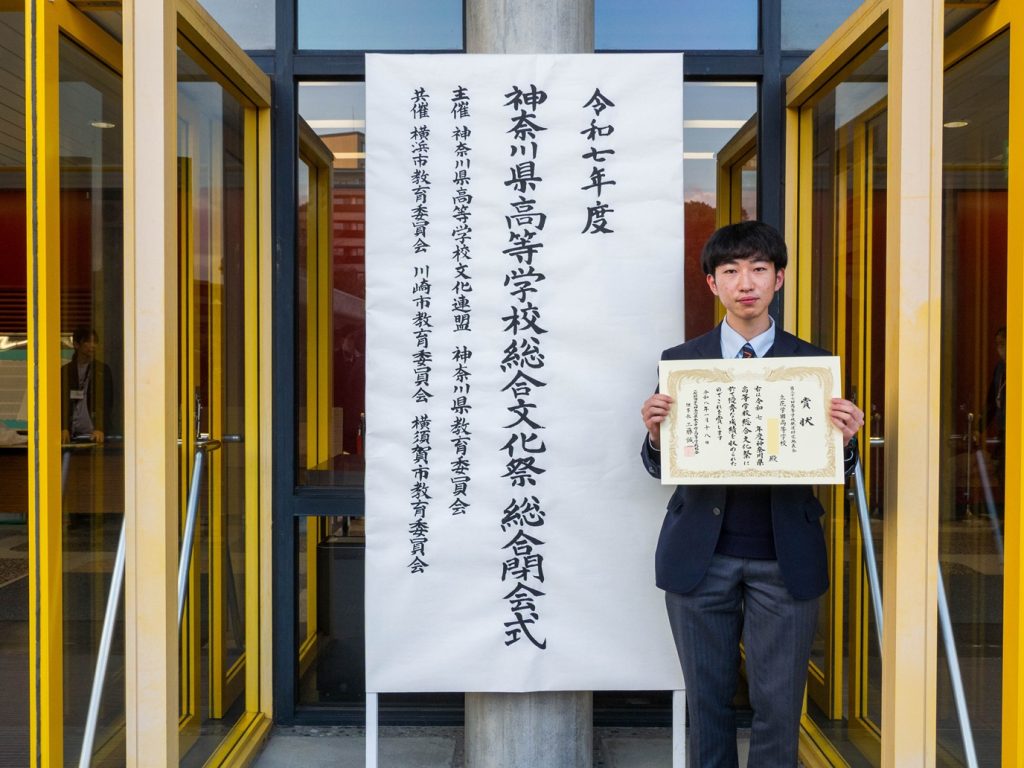 令和七年度
神奈川県高等学校総合文化祭 総合閉会式
主催 神奈川県高等学校文化連盟 神奈川県教育委員会
共催 横浜市教育委員会 川崎市教育委員会 横須賀市教育委員会
賞状
立花学園高等学校
殿
右は令和 七 年度神奈川県
高等学校総合文化祭に
於て優秀な成績を収められた
のでこれを賞します
令和八年一月十八日
工藤誠一